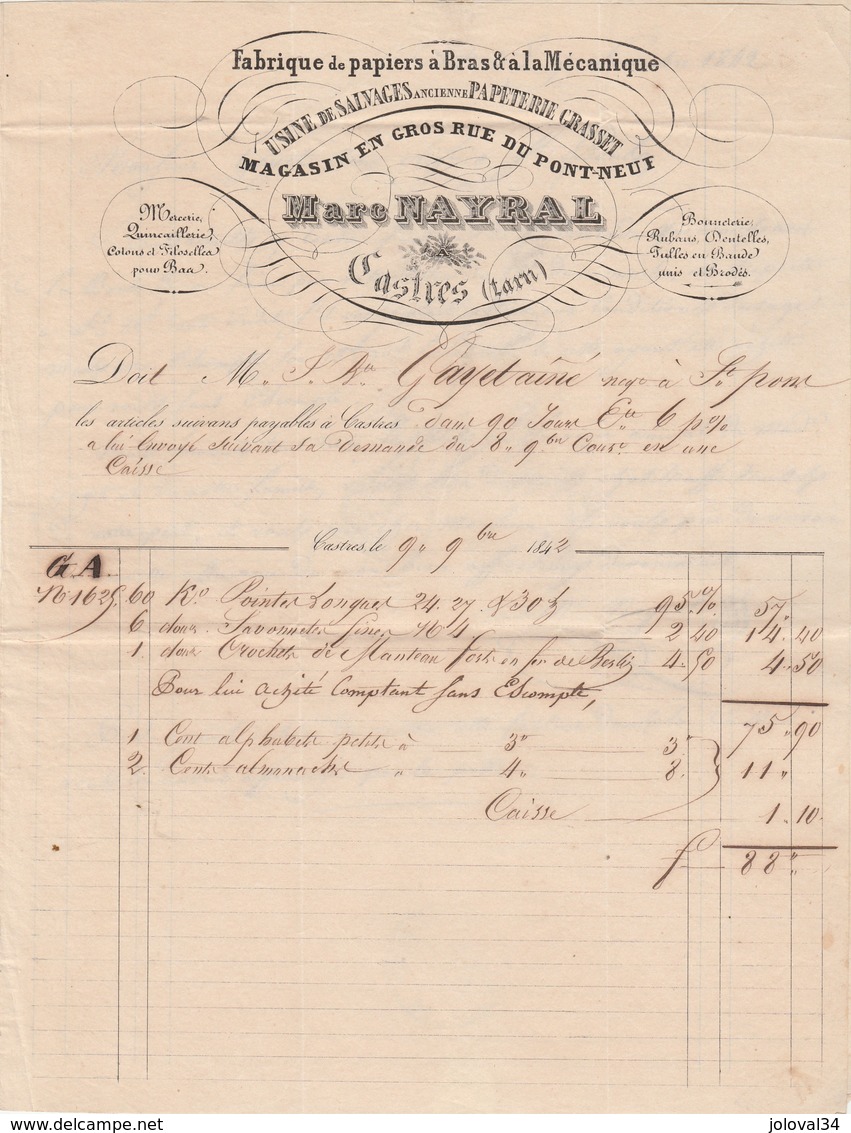 Fabrique de papiers à Bras & à la Mécanique
USINE DE SALVAGES ANCIENNE PAPETERIE GRASSET
MAGASIN EN GROS RUE DU PONT-NEUF
Marc NAYRAL
Castres (tarn)
Mercerie,
Quincaillerie,
Cotons et Filoselles
pour Bas.
Bonneterie,
Rubans, Dentelles,
Tulles en Bande
unis et Brodés.
Doit M. J. Bte Gayet ainé negt à St pons
les articles suivans payables à Castres dans 90 Jours Ete 6 p%
a lui Envoyé suivant sa Demande du 8 9bre Cour. en une
Caisse
Castres, le 9 9bre 1842
G A
No 1625. 60 Ko Pointes Longues 24. 27. & 30 95 % 57"
6 douz. Savonnettes fines No 4 2 40 14. 40
1. douz Crochets de Manteau forts en fer de 4. 50 4. 50
Pour lui acheté Comptant sans Escompte,
75 " 90
1 Cent alphabets petits à 3" 3"
2. Cents almanachs " 4" 8. 11 "
Caisse 1. 10.
f 88 "
delcampe.net
joloval34